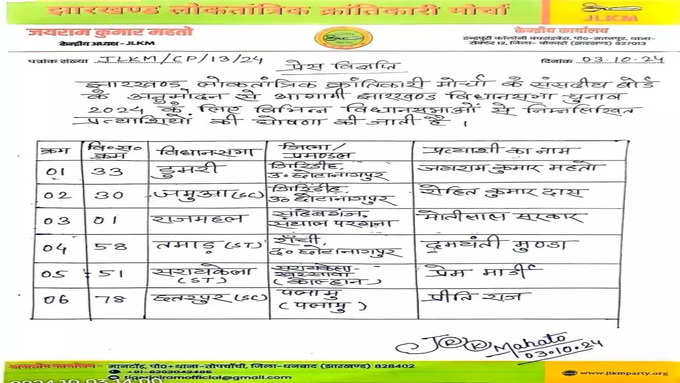 झारखण्ड लोकतांत्रिक क्रांतिकारी मोर्चा
JLKM
जयराम कुमार महतो
केन्द्रीय अध्यक्ष - JLKM
केन्द्रीय कार्यालय
पत्रांक संख्या JLKM/CP/13/24
दिनांक 03.10.24
प्रेस विज्ञप्ति
झारखण्ड लोकतांत्रिक क्रांतिकारी मोर्चा के संसदीय बोर्ड
के अनुमोदन से आगामी झारखण्ड विधानसभा चुनाव
2024 के लिए विभिन्न विधानसभाओं से निम्नलिखित
प्रत्याशियों की घोषणा की जाती है ।
क्रम वि०स० क्रम विधानसभा जिला/प्रमण्डल प्रत्याशी का नाम
01 33 डुमरी गिरिडीह, उ० छोटानागपुर जयराम कुमार महतो
02 30 जमुआ (SC) गिरिडीह, उ० छोटानागपुर रोहित कुमार दास
03 01 राजमहल साहिबगंज, संथाल परगना मोतीलाल सरकार
04 58 तमाड़ (ST) राँची, द० छोटानागपुर दमयंती मुण्डा
05 51 सरायकेला (ST) सरायकेला खरसावां (कोल्हान) प्रेम मार्डी
06 78 छतरपुर (SC) पलामु (पलामु) प्रीति राज
Mahato
03.10.24
मानटाँड़, पो०+थाना-तोपचाँची, जिला-धनबाद (झारखण्ड) 828402
www.jlkmparty.org